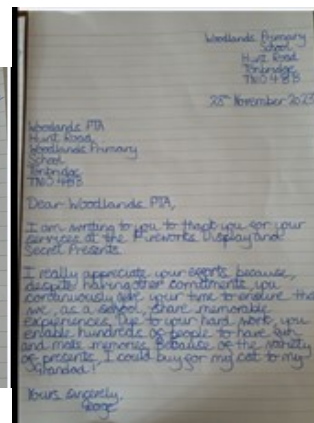 Woodlands Primary
School
Hunt Road
Tonbridge
TN10 4BB
28th November 2023
Woodlands PTA
Hunt Road
Woodlands Primary
School
Tonbridge
TN10 4BB
Dear Woodlands PTA,
I am writing to you to thank you for your
services at the Fireworks Display and
Secret Presents.
I really appreciate your efforts because,
despite having other commitments, you
continuously give your time to ensure that
we, as a school, share memorable
experiences. Due to your hard work, you
enable hundreds of people to have fun
and make memories. Because of the variety
of presents, I could buy for my cat to my
Grandad!
Yours sincerely,